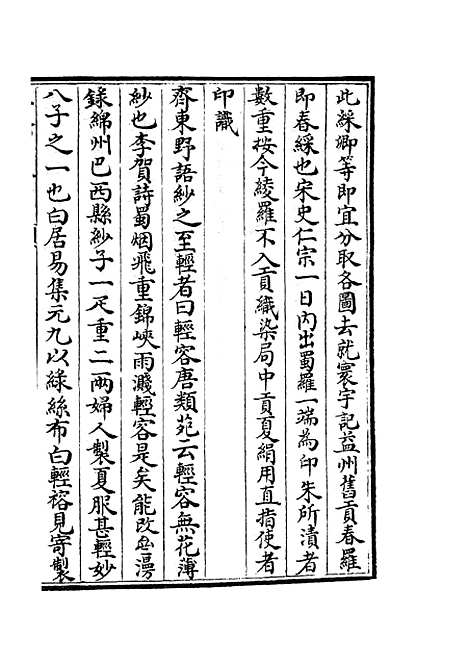 此綵卿等即宜分取各圖去就寰宇記益州舊貢春羅
即春綵也宋史仁宗一日内出蜀羅一端為印朱所漬者
數重按今綾羅不入貢織染局中貢夏絹用直指使者
印識
齊東野語紗之至輕者曰輕容唐類苑云輕容無花薄
紗也李賀詩蜀烟飛重錦峽雨濺輕容是矣能改齋漫
録綿州巴西縣紗子一疋重二兩婦人製夏服甚輕妙
八子之一也白居易集元九以緑絲布白輕褣見寄製